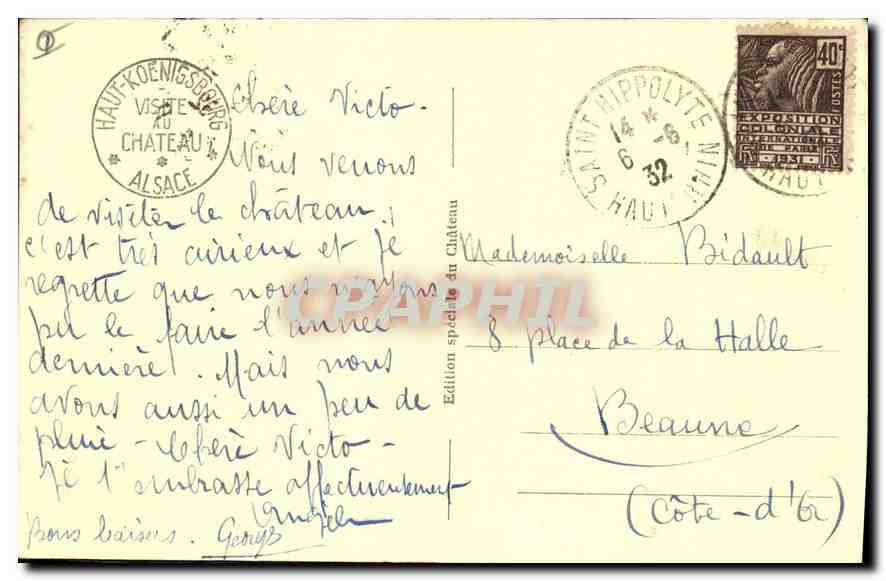 HAUT-KOENIGSBOURG
VISITE
AU
CHATEAU
ALSACE
Chère Victo.
Nous venons
de visiter le château.
c'est très curieux et je
regrette que nous n'ayons
pu le faire l'année
dernière. Mais nous
avons aussi un peu de
pluie - Chère Victo -
Je t'embrasse affectueusement
bons baisers. Georges
Edition spéciale du Château
CPAPHIL
SAINT HIPPOLYTE
14 *
6 -6
32
HAUT RHIN
40c
POSTES
EXPOSITION
COLONIALE
INTERNATIONALE
DE PARIS
1931
HAUT
Mademoiselle Bidault
8 place de la Halle
Beaune
(Côte-d'Or)